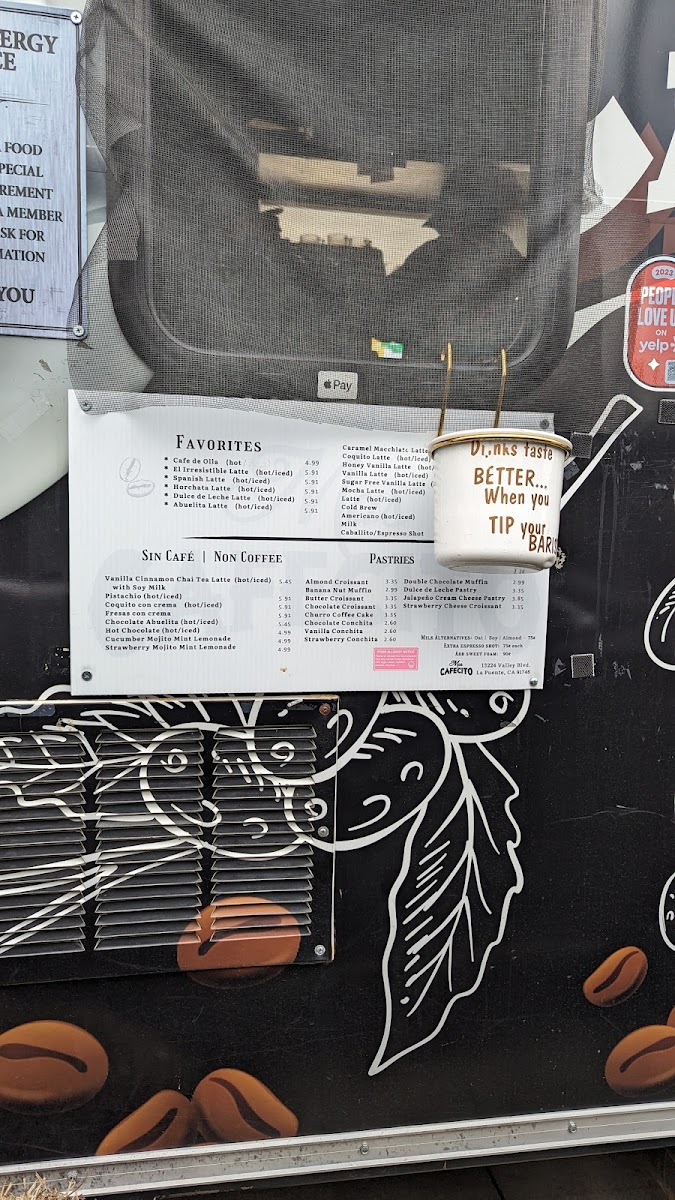 ERGY
CE
FOOD
PECIAL
REMENT
A MEMBER
SK FOR
MATION
YOU
2023
PEOPL
LOVE U
ON
yelp
Pay
FAVORITES
Cafe de Olla (hot 4.99
El Irresistible Latte (hot/iced) 5.91
Spanish Latte (hot/iced) 5.91
Horchata Latte (hot/iced) 5.91
Dulce de Leche Latte (hot/iced) 5.91
Abuelita Latte (hot) 5.91
Caramel Macchiato Latte
Coquito Latte (hot/iced)
Honey Vanilla Latte (hot
Vanilla Latte (hot/iced)
Sugar Free Vanilla Latte
Mocha Latte (hot/iced)
Latte (hot/iced)
Cold Brew
Americano (hot/iced)
Milk
Caballito/Espresso Shot
Dr,nks taste
BETTER...
When you
TIP your
BARIS
SIN CAFÉ | NON COFFEE
Vanilla Cinnamon Chai Tea Latte (hot/iced) 5.45
with Soy Milk
Pistachio (hot/iced) 5.91
Coquito con crema (hot/iced) 5.91
Fresas con crema 5.91
Chocolate Abuelita (hot/iced) 5.45
Hot Chocolate (hot/iced) 4.99
Cucumber Mojito Mint Lemonade 4.99
Strawberry Mojito Mint Lemonade 4.99
PASTRIES
Almond Croissant 3.35
Banana Nut Muffin 2.99
Butter Croissant 3.35
Chocolate Croissant 3.35
Churro Coffee Cake 3.35
Chocolate Conchita 2.60
Vanilla Conchita 2.60
Strawberry Conchita 2.60
Double Chocolate Muffin 2.99
Dulce de Leche Pastry 3.35
Jalapeño Cream Cheese Pastry 3.85
Strawberry Cheese Croissant 3.35
MILK ALTERNATIVES: Oat | Soy | Almond - 75¢
EXTRA ESPRESSO SHOT: 75¢ each
ADD SWEET FOAM: 90¢
CAFECITO
13226 Valley Blvd.
La Puente, CA 91746